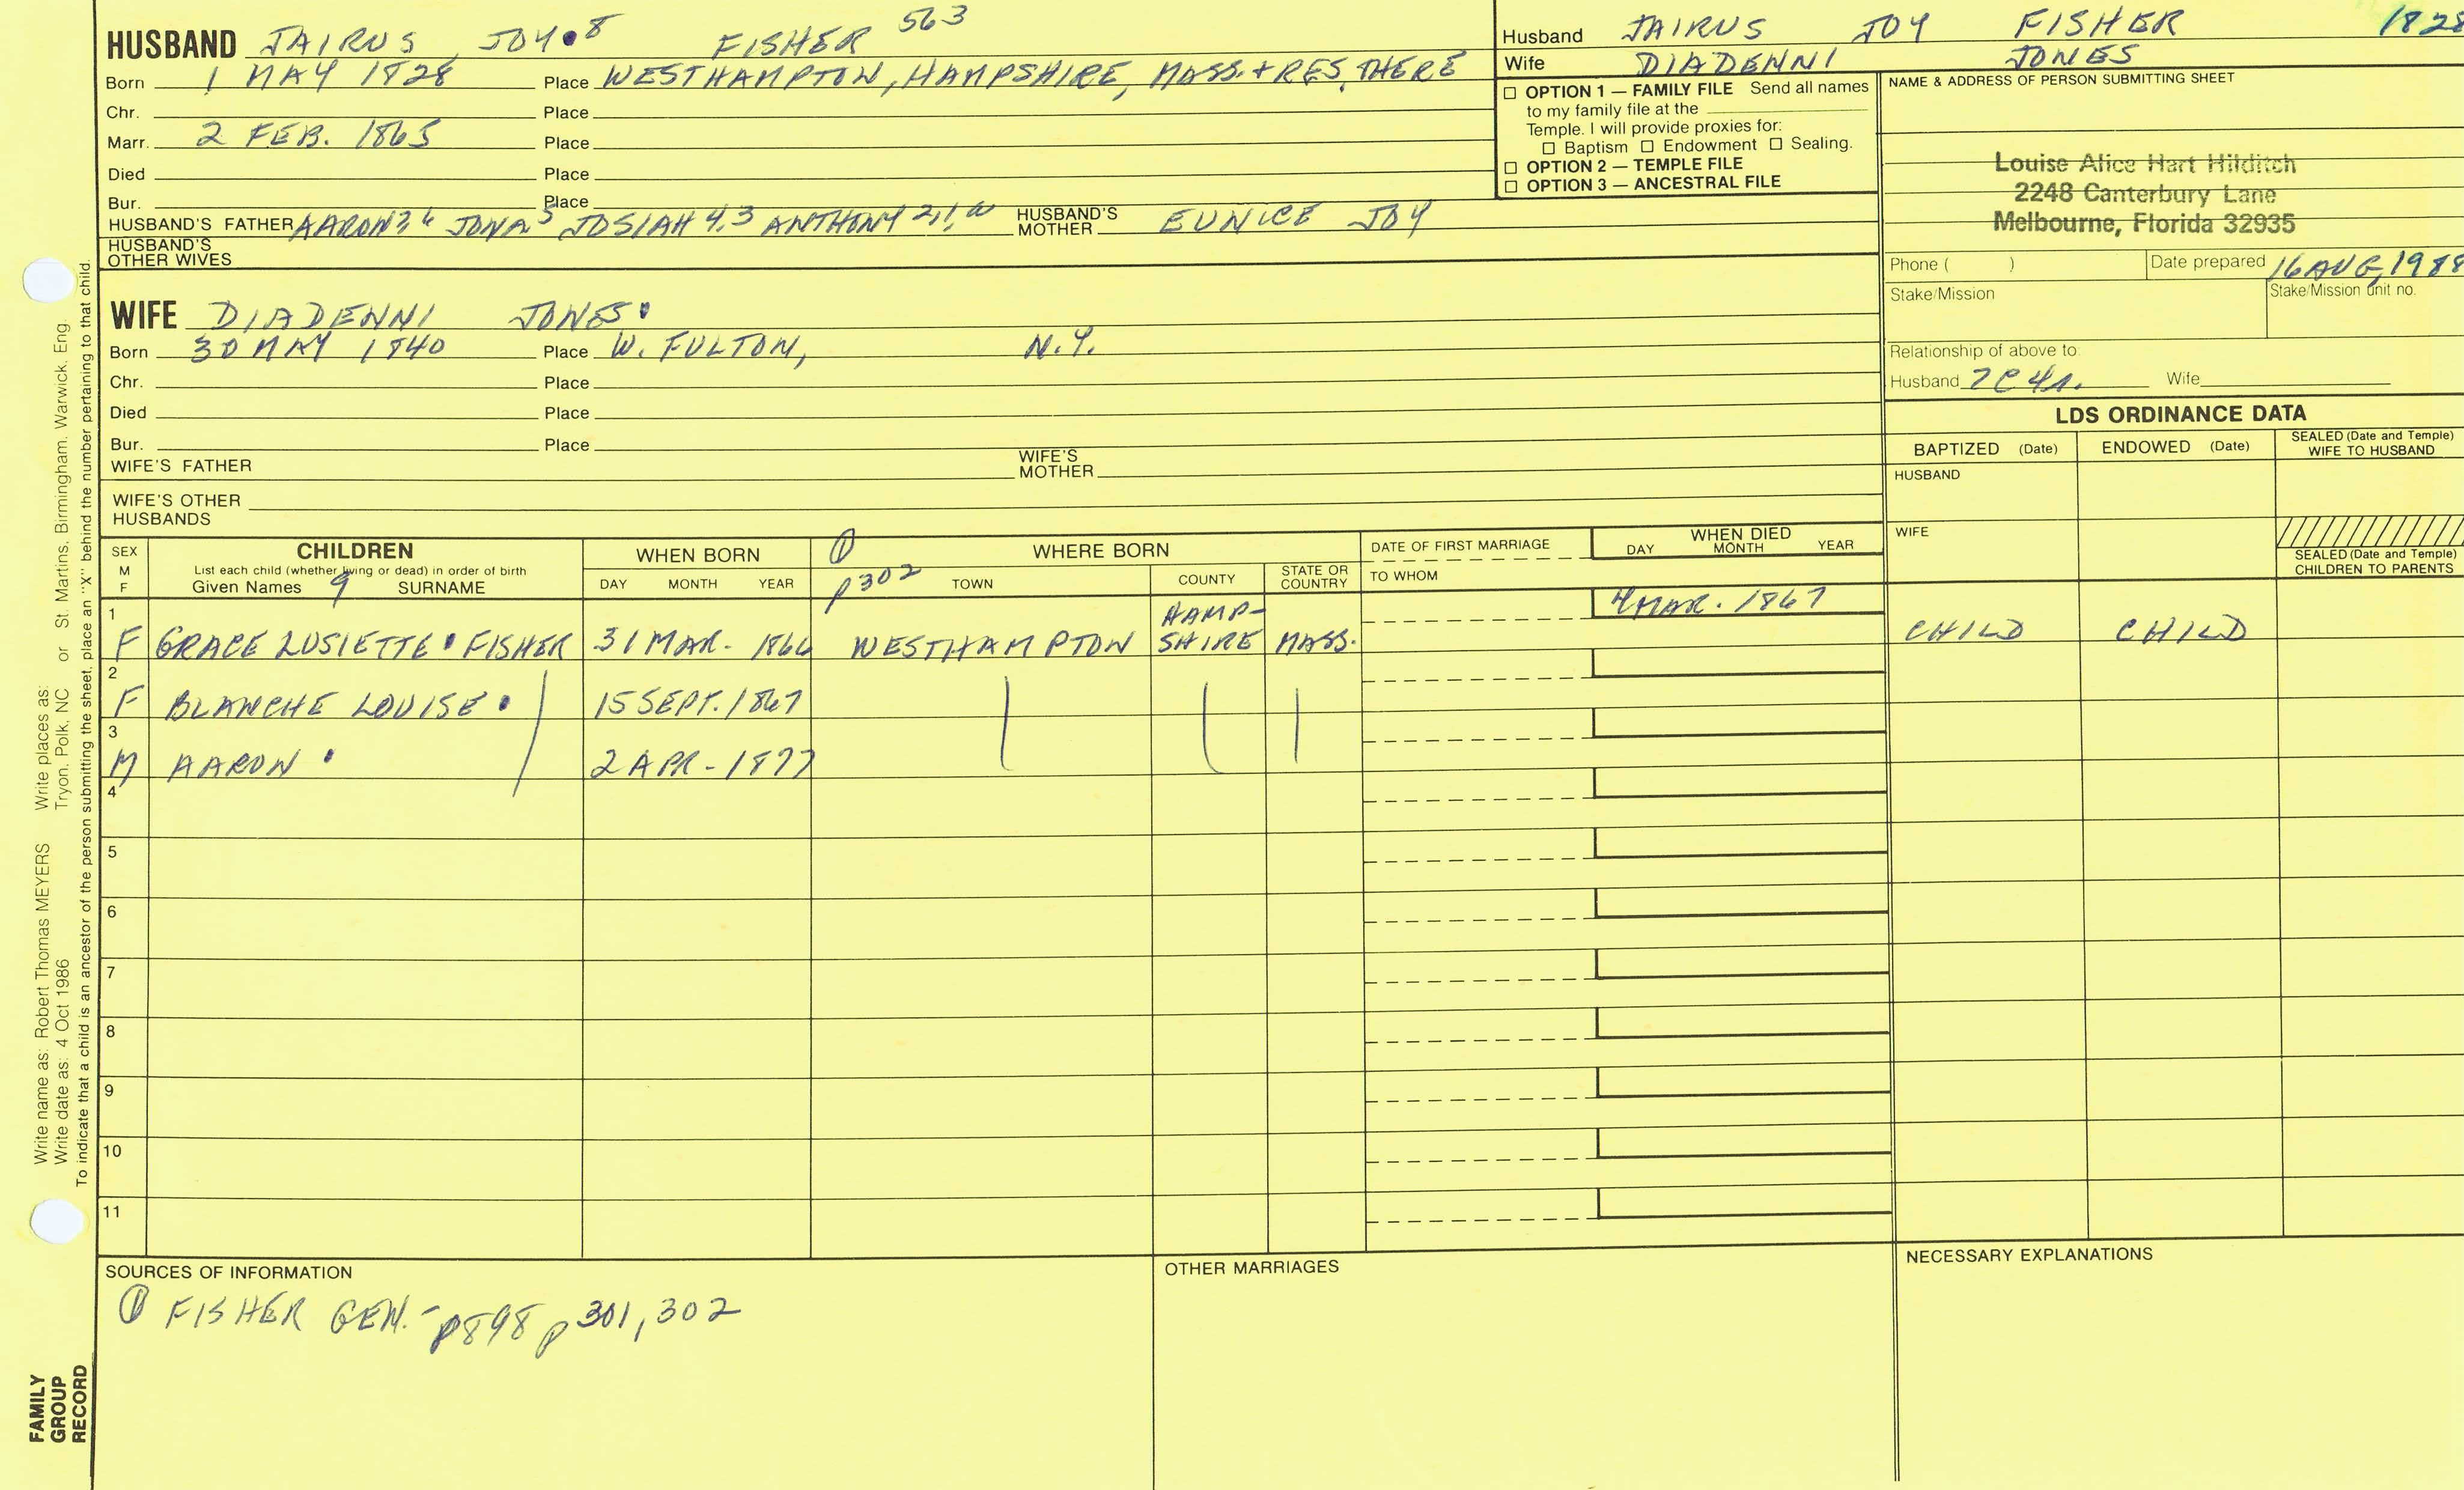 HUSBAND JAIRUS JOY 8 FISHER 563
Born 1 MAY 1828 Place WESTHAMPTON, HAMPSHIRE, MASS. + RES. THERE
Chr. Place
Marr. 2 FEB. 1865 Place
Died Place
Bur. Place
HUSBAND'S FATHER AARON JONA 5 JOSIAH 4,3 ANTHONY 2,1 HUSBAND'S MOTHER EUNICE JOY
HUSBAND'S OTHER WIVES
WIFE DIADENNI JONES
Born 30 MAY 1840 Place W. FULTON, N.Y.
Chr. Place
Died Place
Bur. Place
WIFE'S FATHER WIFE'S MOTHER
WIFE'S OTHER HUSBANDS
Husband JAIRUS JOY FISHER 1828
Wife DIADENNI JONES
☐ OPTION 1 — FAMILY FILE Send all names
to my family file at the
Temple. I will provide proxies for:
☐ Baptism ☐ Endowment ☐ Sealing.
☐ OPTION 2 — TEMPLE FILE
☐ OPTION 3 — ANCESTRAL FILE
NAME & ADDRESS OF PERSON SUBMITTING SHEET
Louise Alice Hart Hilditch
2248 Canterbury Lane
Melbourne, Florida 32935
Phone ( ) Date prepared 16 AUG, 1988
Stake/Mission Stake/Mission unit no.
Relationship of above to
Husband 2C4R. Wife
LDS ORDINANCE DATA
BAPTIZED (Date) ENDOWED (Date) SEALED (Date and Temple) WIFE TO HUSBAND
HUSBAND
WIFE
SEALED (Date and Temple) CHILDREN TO PARENTS
SEX M F
CHILDREN
List each child (whether living or dead) in order of birth
Given Names 9 SURNAME
WHEN BORN
DAY MONTH YEAR
① p302
WHERE BORN
TOWN COUNTY STATE OR COUNTRY
DATE OF FIRST MARRIAGE
TO WHOM
WHEN DIED
DAY MONTH YEAR
1 F GRACE LUSIETTE FISHER 31 MAR. 1866 WESTHAMPTON HAMP-SHIRE MASS. 4 MAR. 1867 CHILD CHILD
2 F BLANCHE LOUISE 15 SEPT. 1867
3 M AARON 2 APR - 1877
4
5
6
7
8
9
10
11
SOURCES OF INFORMATION
① FISHER GEN. - p898 p301, 302
OTHER MARRIAGES
NECESSARY EXPLANATIONS
Write name as: Robert Thomas MEYERS Write places as:
Write date as: 4 Oct 1986 Tryon, Polk, NC or St. Martins, Birmingham, Warwick, Eng.
To indicate that a child is an ancestor of the person submitting the sheet, place an "X" behind the number pertaining to that child.
FAMILY
GROUP
RECORD